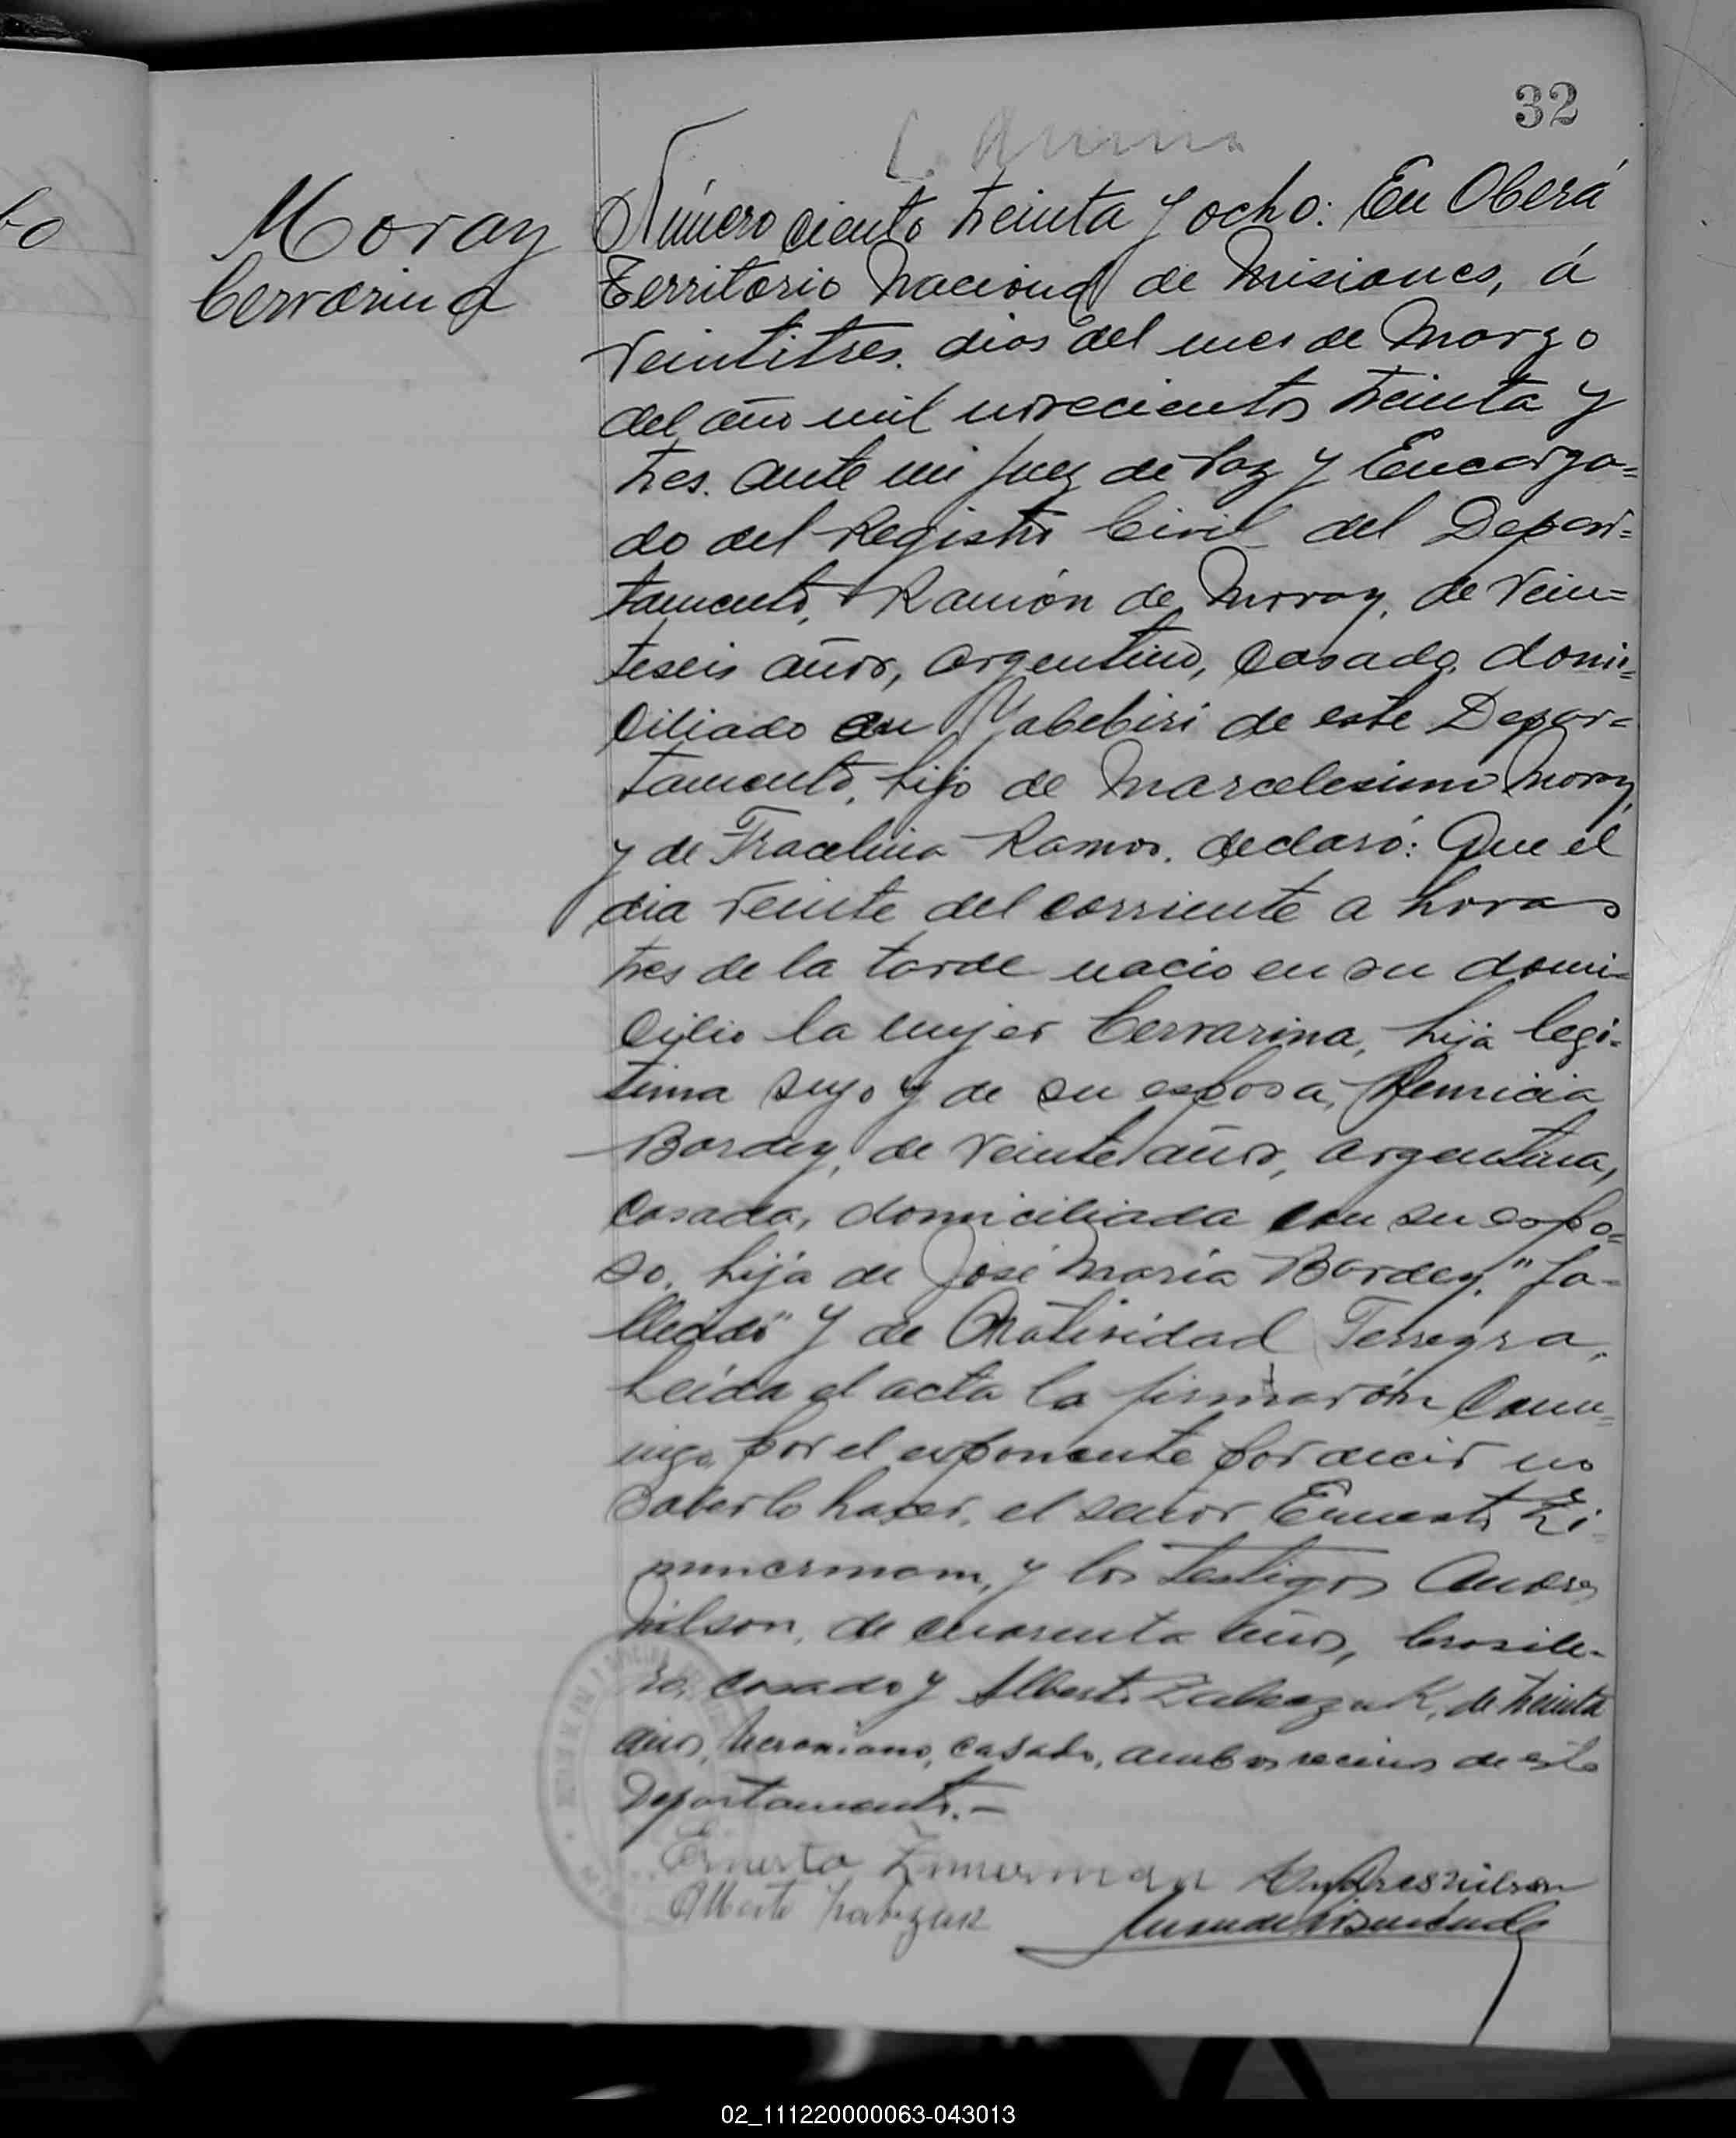 32
Moray
Cervarina
Número ciento treinta y ocho: En Oberá
Territorio Nacional de Misiones, á
veintitres dias del mes de Marzo
del año mil novecientos treinta y
tres. ante mi Juez de Paz y Encarga=
do del Registro Civil del Depar=
tamento, Ramón de Moray, de vein=
teseis años, argentino, casado, domi=
ciliado en Yabebirí de este Depar=
tamento, hijo de Marcelesimo Moray,
y de Tracelina Ramos, declaró: Que el
dia veinte del corriente a horas
tres de la tarde nacio en su domi=
cilio la mujer Cervarina, hija legi=
tima suyo y de su esposa,
Bordey, de veinte años, argentina,
casada, domiciliada con su espo=
so, hija de José María Bordey, "fa=
llecido" y de Natividad
Leída el acta la firmarón conm=
migo, por el exponente por decir no
saberlo hacer, el señor Ernesto Zi=
mmermam, y los testigos Andres
Nilson, de cuarenta años, brasile=
ro, casado y Alberto de treinta
años, casado, ambos vecinos de este
Departamento.—
Ernesto Zimerman Andres nilson
Alberto
02_111220000063-043013